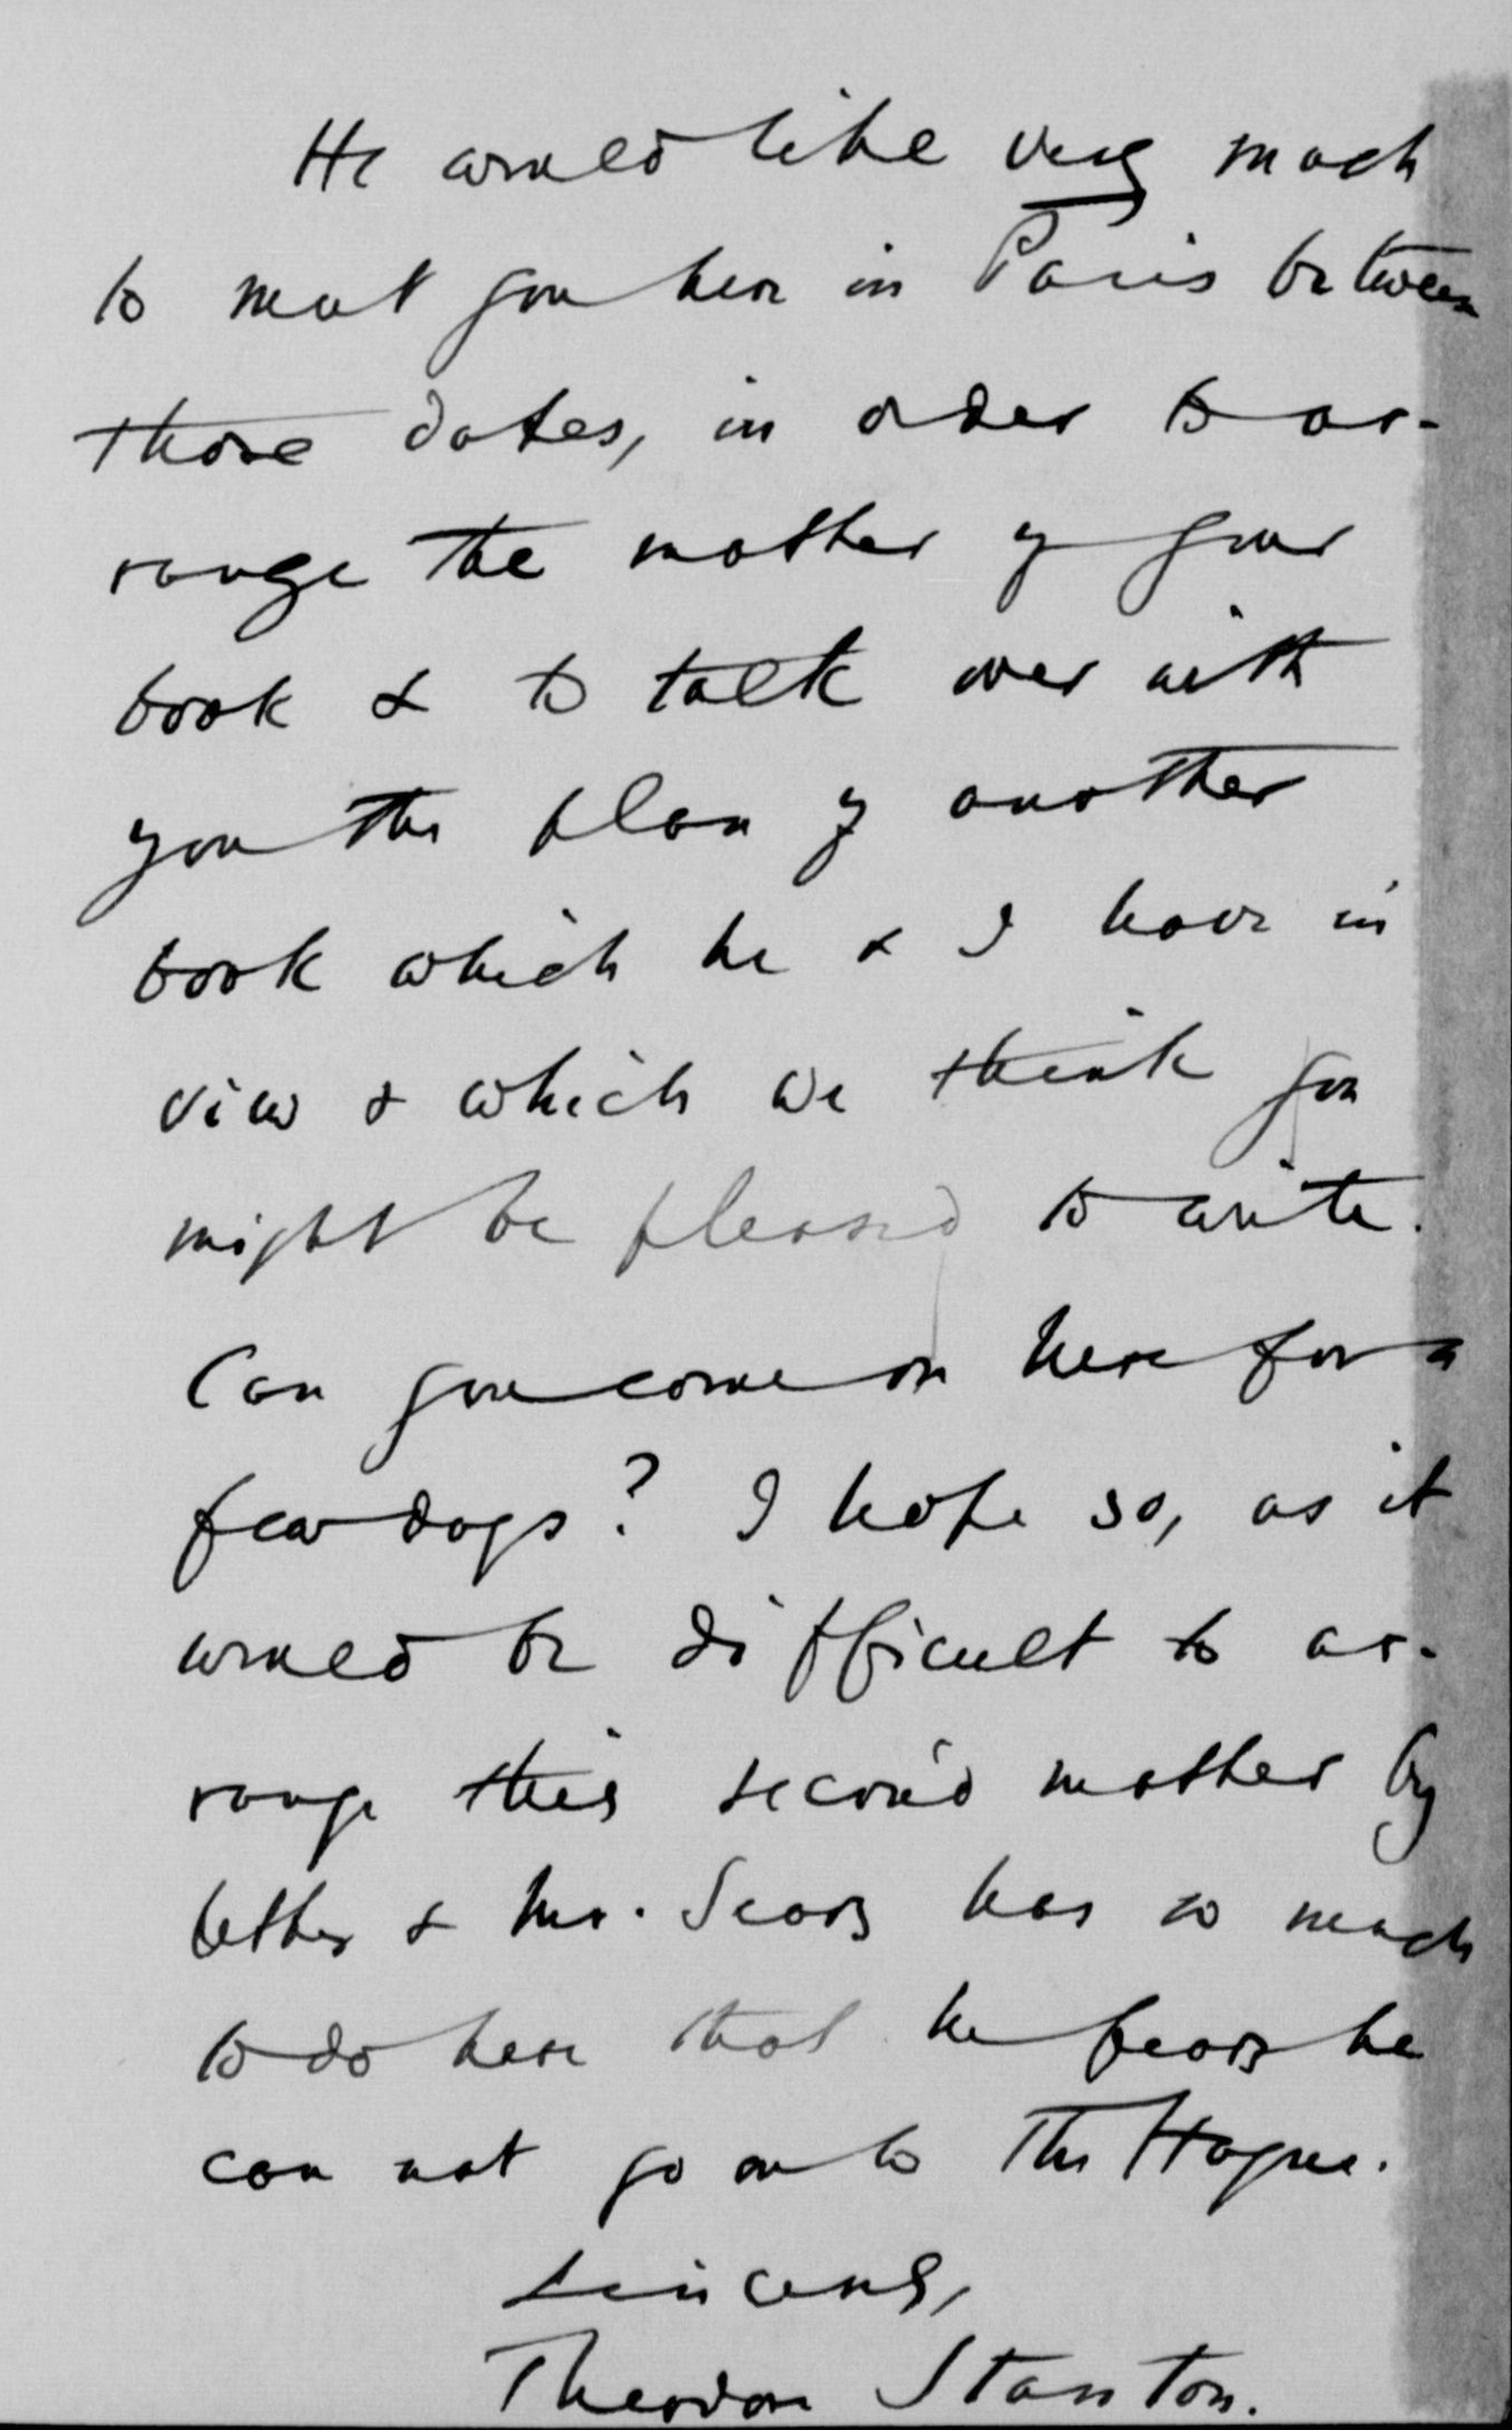 He would like very much
to meet you here in Paris between
those dates, in order to ar-
range the matter of your
book & to talk over with
you the plan of another
book which he & I have in
view & which we think you
might be pleased to write.
Can you come on here for a
few days? I hope so, as it
would be difficult to ar-
range this second matter by
letter & Mr. Sears has so much
to do here that he fears he
can not go on to The Hague.
Sincerely,
Theodore Stanton.